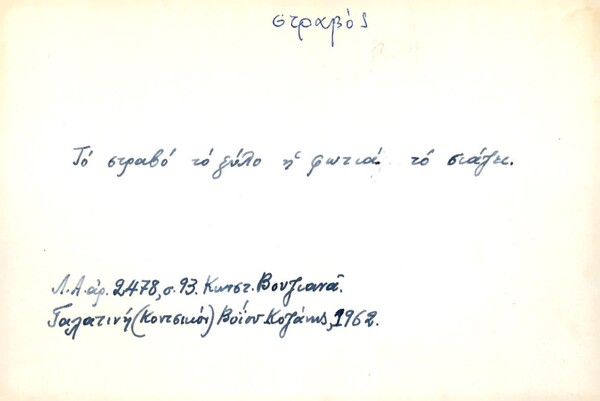 στραβός
Τό στραβό τό ξύλο ἡ φωτιά τό σιάζει.
Λ.Α. ἀρ. 2478, σ. 93. Κωνστ. Βουζιανᾶ.
Γαλατινή (Κοντσικόν) Βοΐου Κοζάνης, 1962.